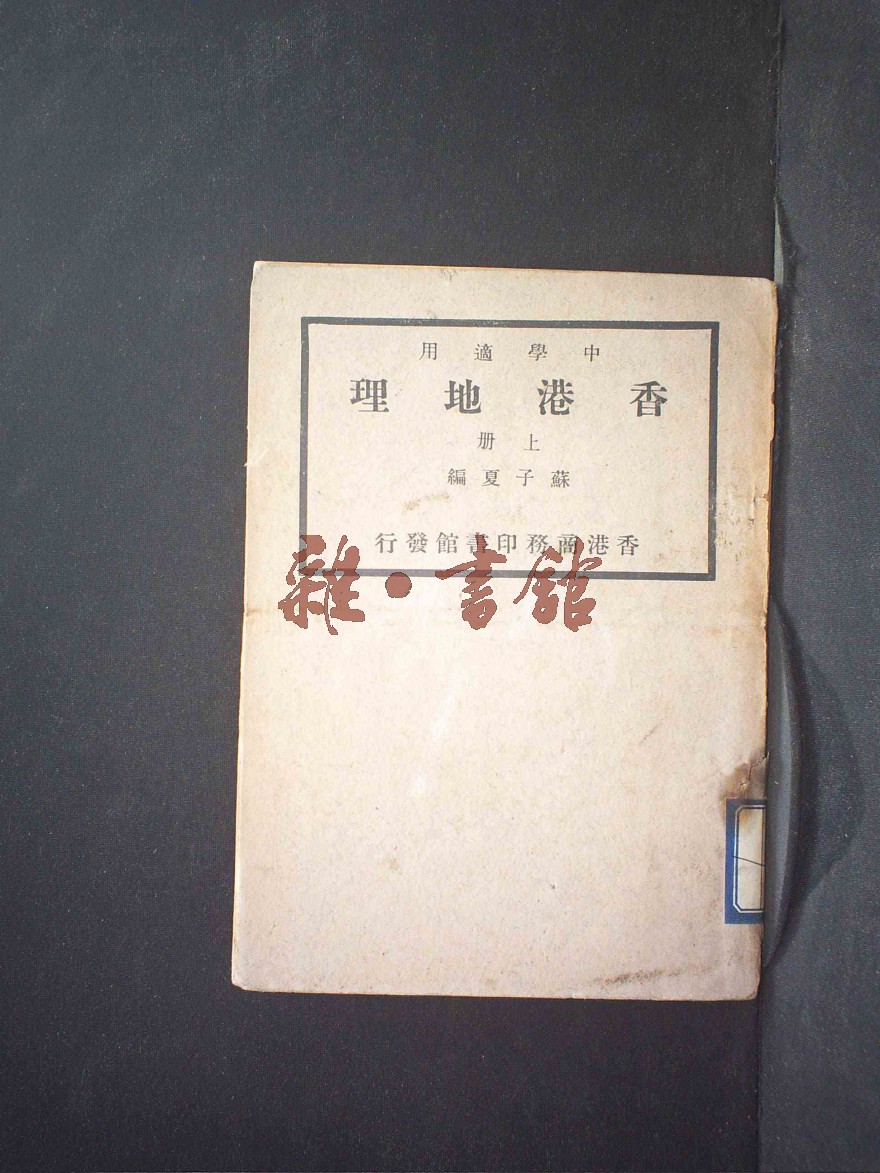 中學適用
香港地理
上册
蘇子夏編
香港商務印書館發行
雜·書館